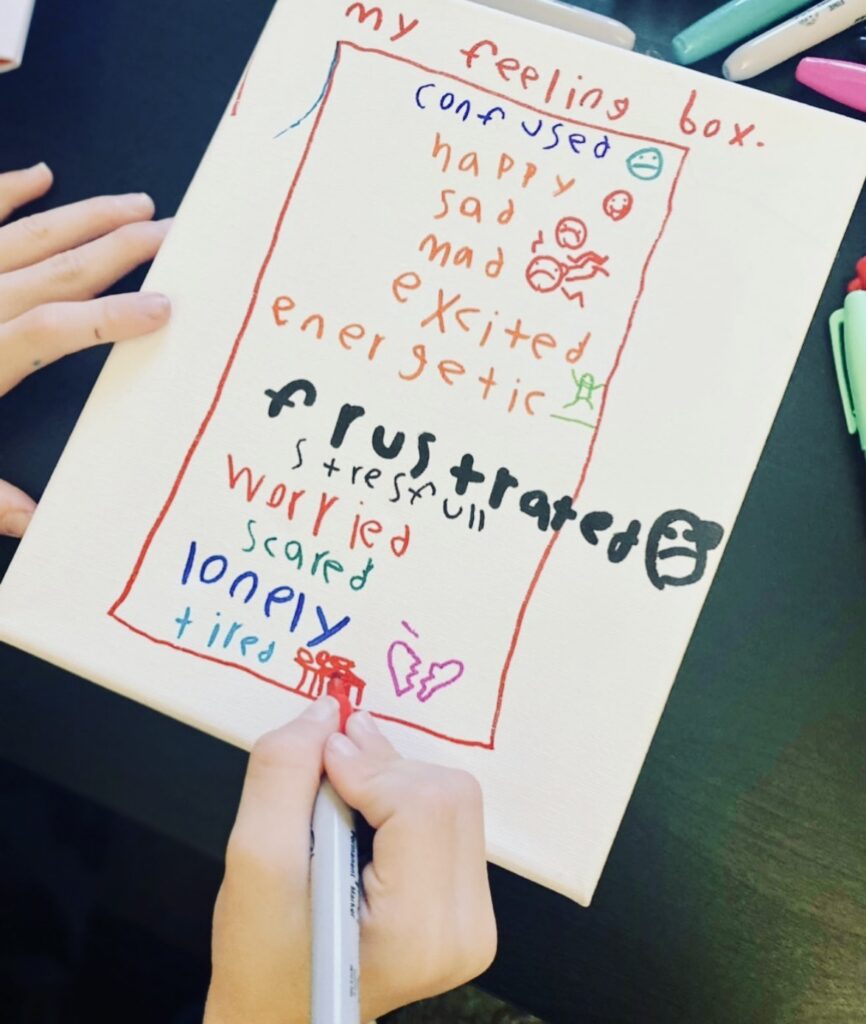 my feeling box.
confused
happy
sad
mad
excited
energetic
frustrated
stresfull
worried
scared
lonely
tired
Permanent Marker
FINE